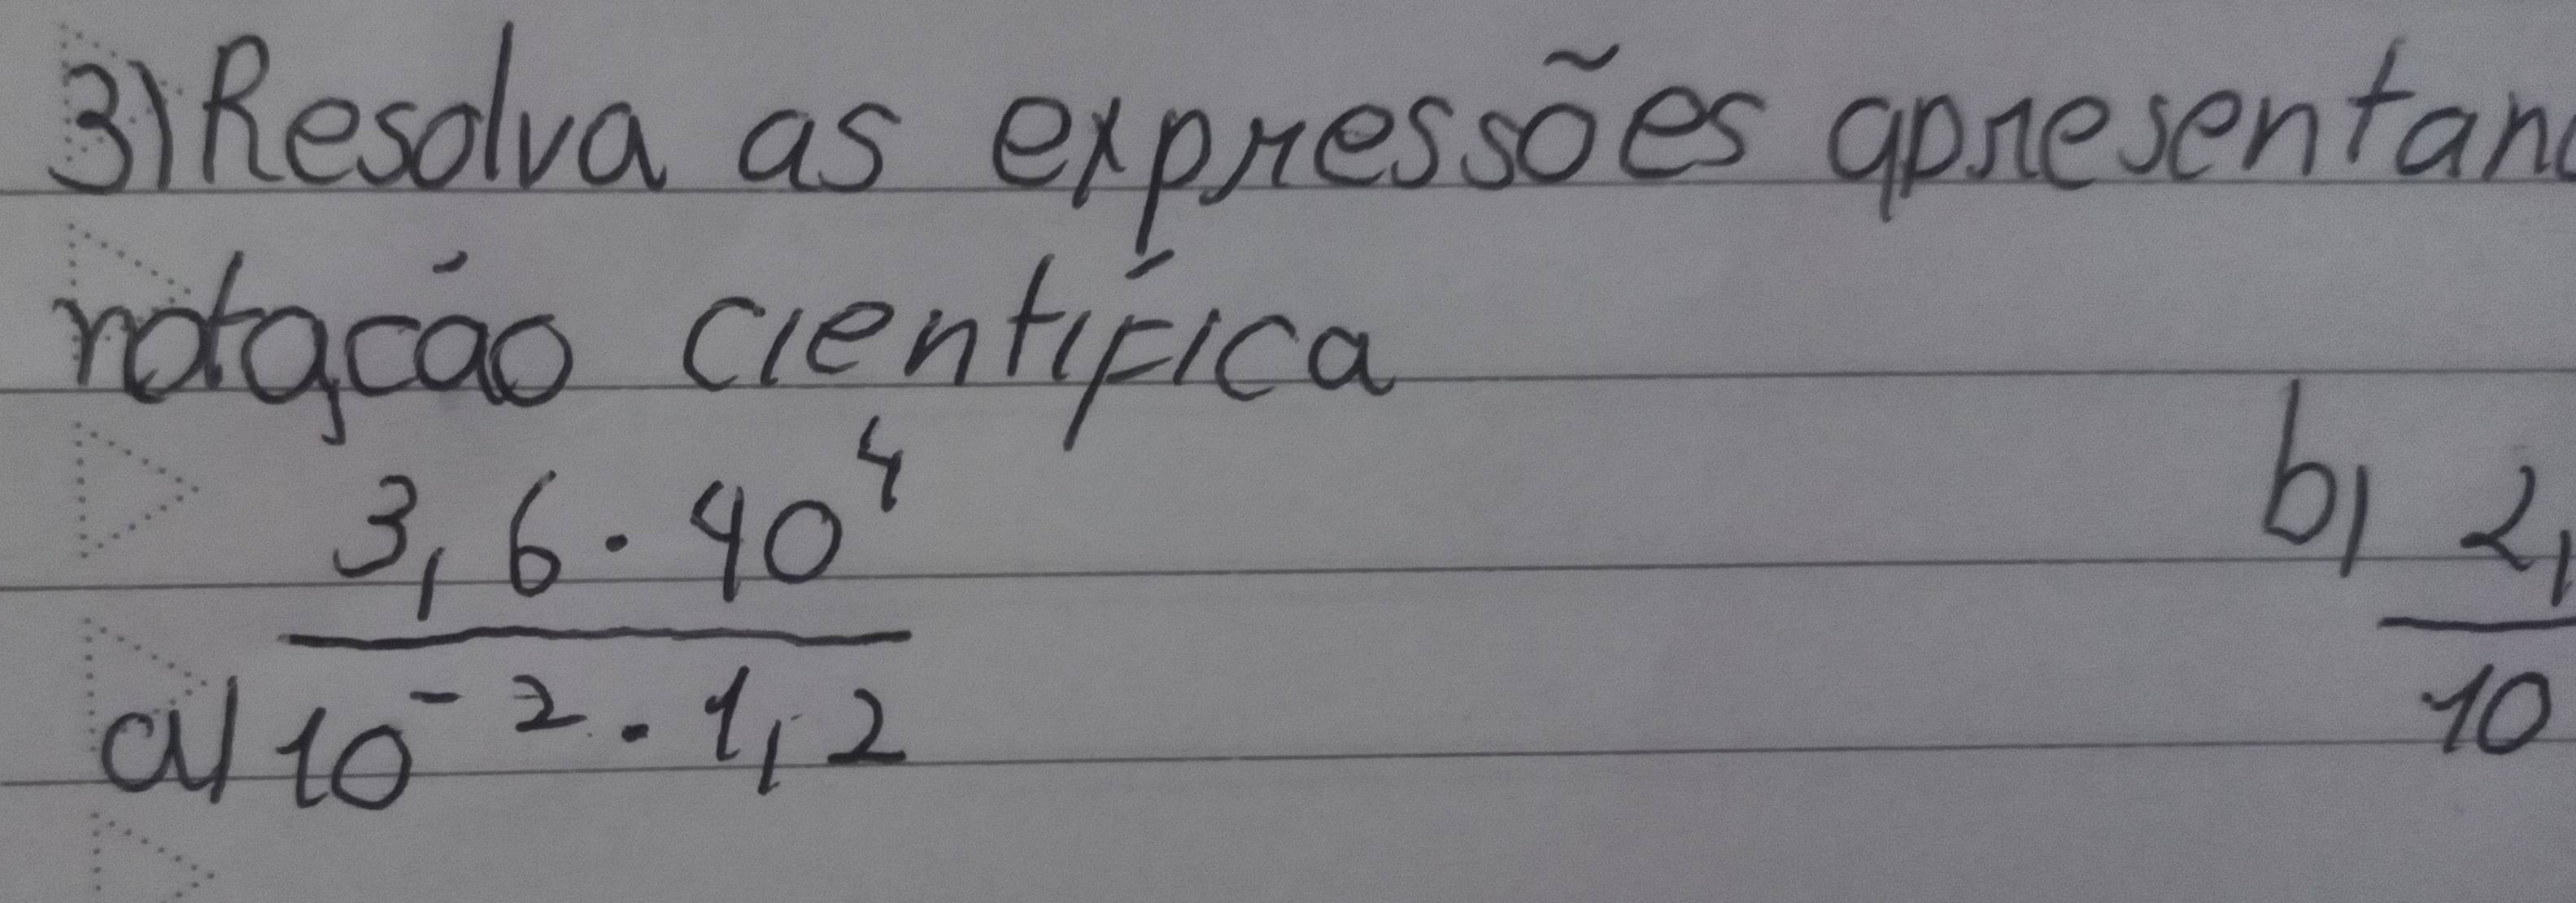 3) Resolva as expressões apresentan
notação científica
3,6 · 40⁴ b) 2,
a) 10⁻² · 1,2 10